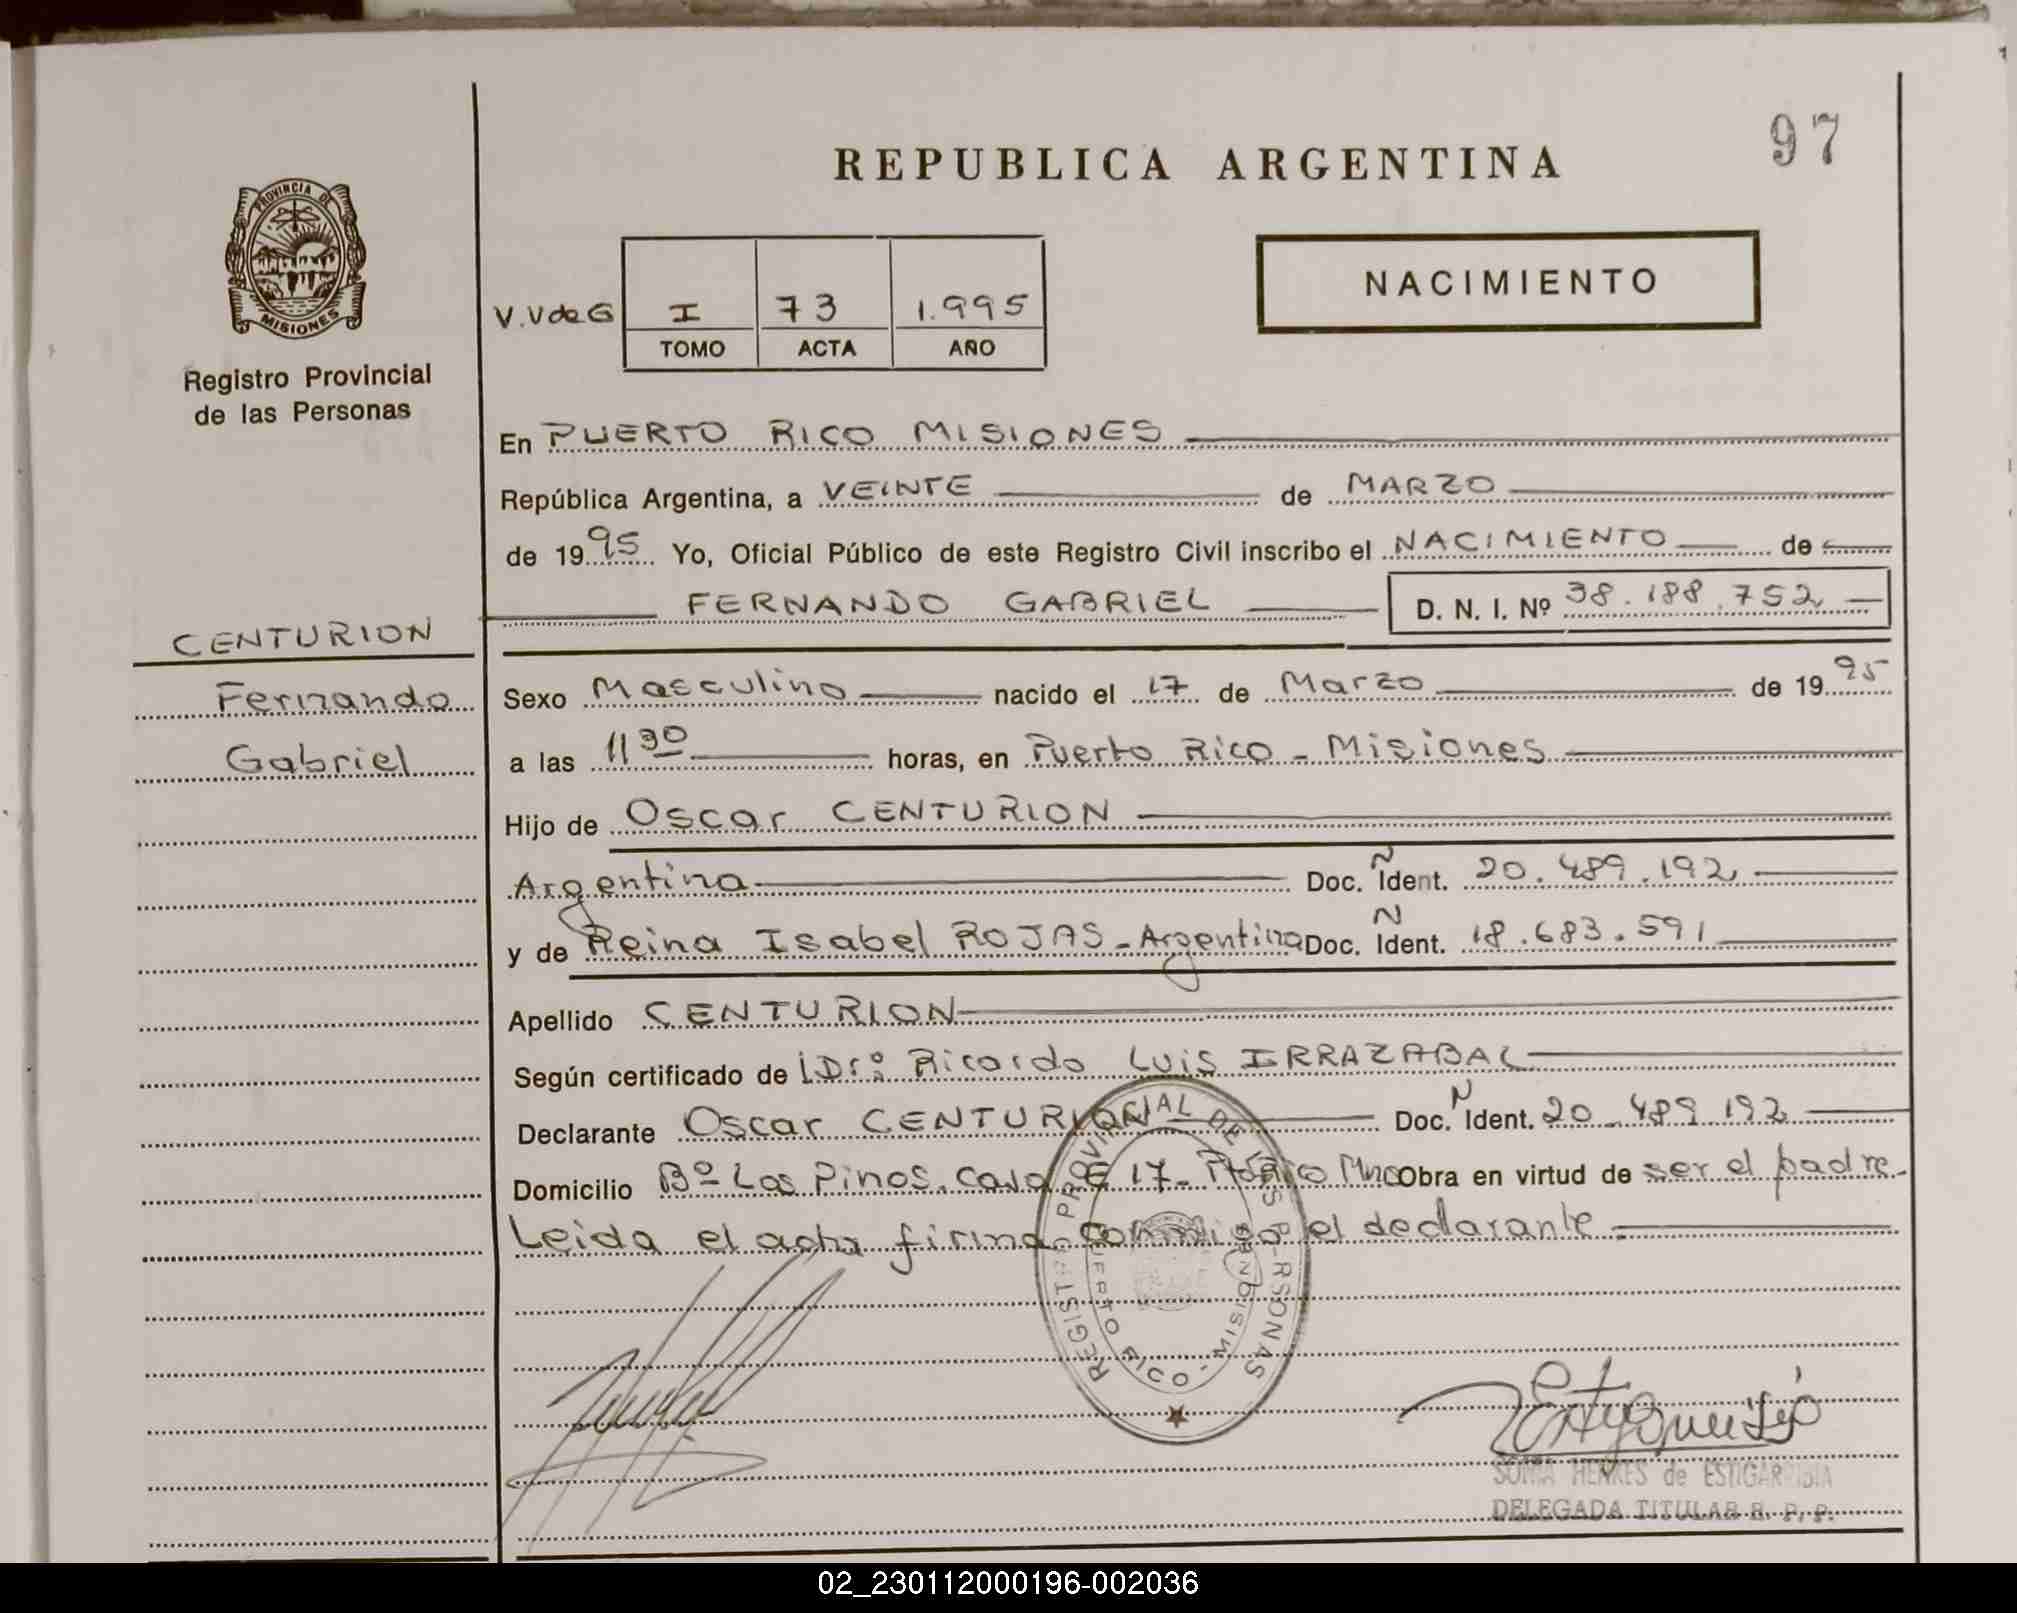 97
REPUBLICA ARGENTINA
PROVINCIA DE
MISIONES
Registro Provincial
de las Personas
NACIMIENTO
V.V de G I 73 1.995
TOMO ACTA AÑO
En PUERTO RICO MISIONES
República Argentina, a VEINTE de MARZO
de 1995 Yo, Oficial Público de este Registro Civil inscribo el NACIMIENTO de
FERNANDO GABRIEL D. N. I. Nº 38.188.752
CENTURION
Fernando
Gabriel
Sexo Masculino nacido el 17 de Marzo de 1995
a las 11 30 horas, en Puerto Rico - Misiones
Hijo de Oscar CENTURION
Argentina Doc. Ñ Ident. 20.489.192
y de Reina Isabel ROJAS - Argentina Doc. N Ident. 18.683.591
Apellido CENTURION
Según certificado de Dr: Ricardo Luis IRRAZABAL
Declarante Oscar CENTURION Doc. N Ident. 20.489.192
Domicilio Bº Los Pinos. Casa E 17 - Pto Rico Mnes Obra en virtud de ser el padre
Leida el acta firma conmigo el declarante
REGISTRO PROVINCIAL DE LAS PERSONAS
PUERTO RICO - MISIONES
SONIA HENKES de ESTIGARRIBIA
DELEGADA TITULAR R. P. P.
02_230112000196-002036